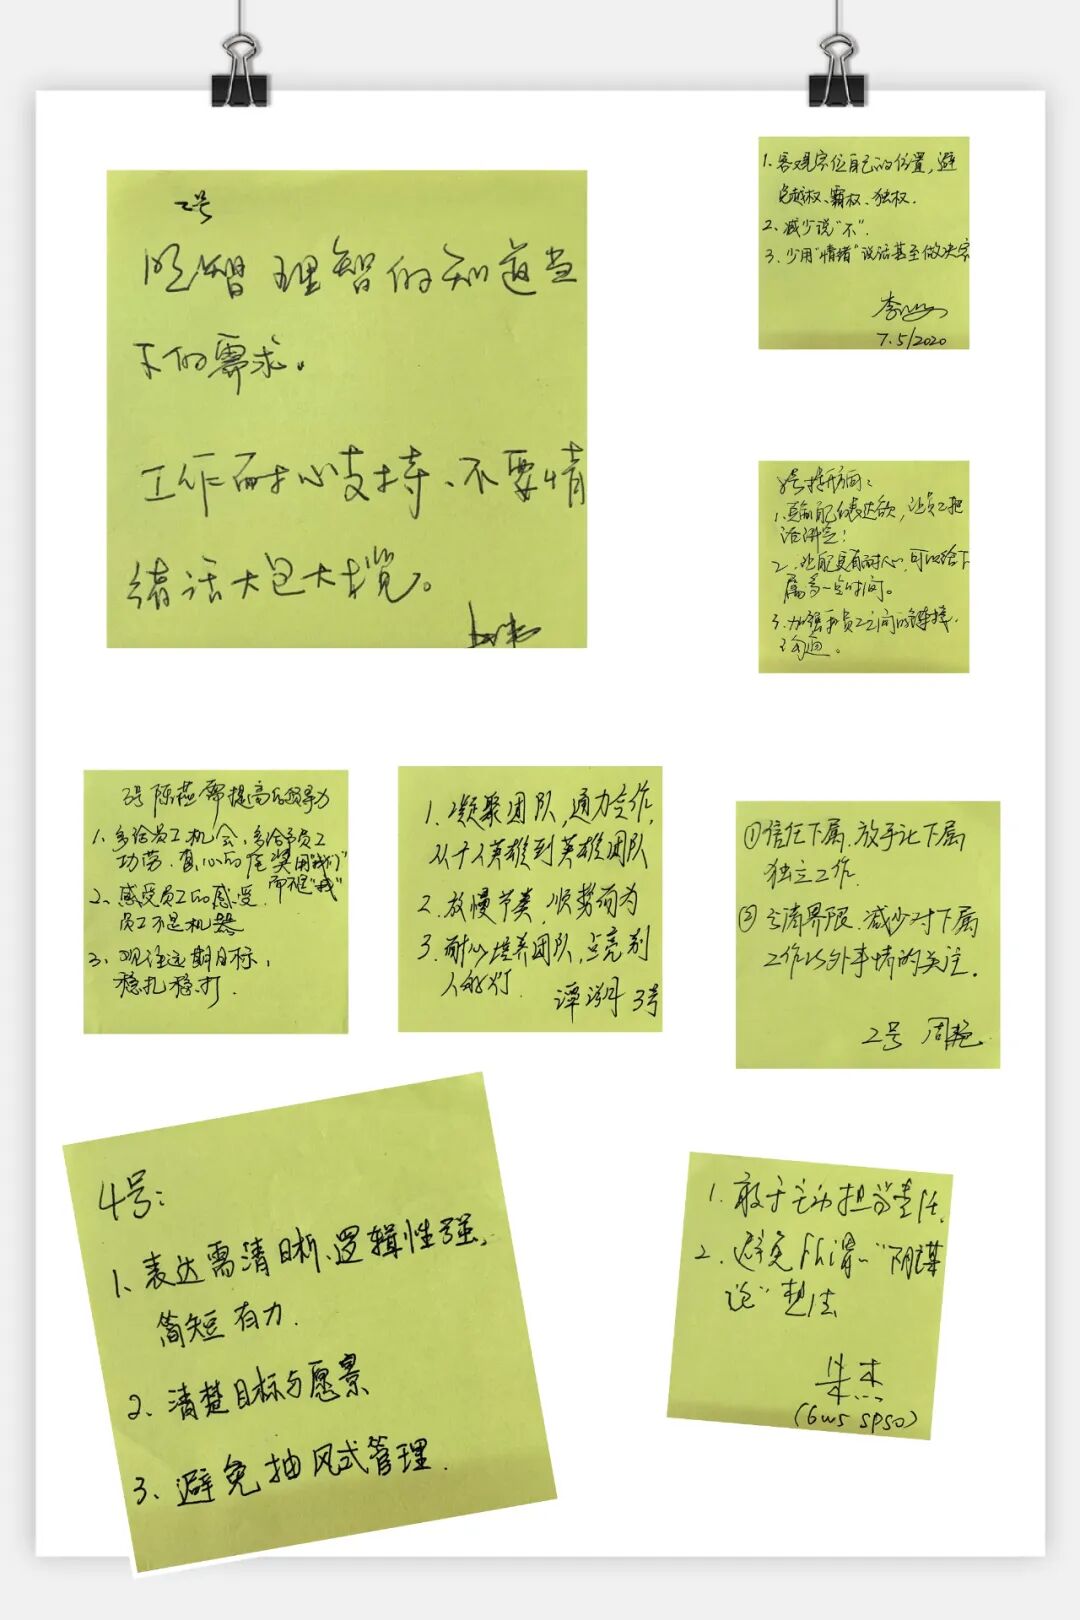 2号
明智理智的知道当
下的需求。
工作耐心支持、不要情
绪话大包大揽。
1、客观定位自己的位置，避
免越权、霸权、独权.
2、减少说"不".
3、少用"情绪"说话甚至做决定
李
7.5/2020
提升方面：
1、自己的表达欲，让员工把
话讲完！
2、让自己更有耐心，可以给下
属多一点时间。
3、加强和员工之间的链接，
沟通。
3号 陈燕霞提高的领导力
1、多给员工机会，多给予员工
功劳、真心的夸奖用"我们"
而不是"我"
2、感受员工的感受，
员工不是机器
3、关注远期目标，
稳扎稳打.
1、凝聚团队，通力合作，
从个人英雄到英雄团队
2、放慢节奏，顺势而为
3、耐心培养团队，点亮别
人的灯.
谭 3号
①信任下属.放手让下属
独立工作.
②分清界限.减少对下属
工作以外事情的关注.
2号 周艳
4号：
1、表达需清晰、逻辑性强、
简短有力.
2、清楚目标与愿景
3、避免抽风式管理.
1、敢于主动担当责任.
2、避免所谓"阴谋
论"想法
朱杰
(6ws spso)